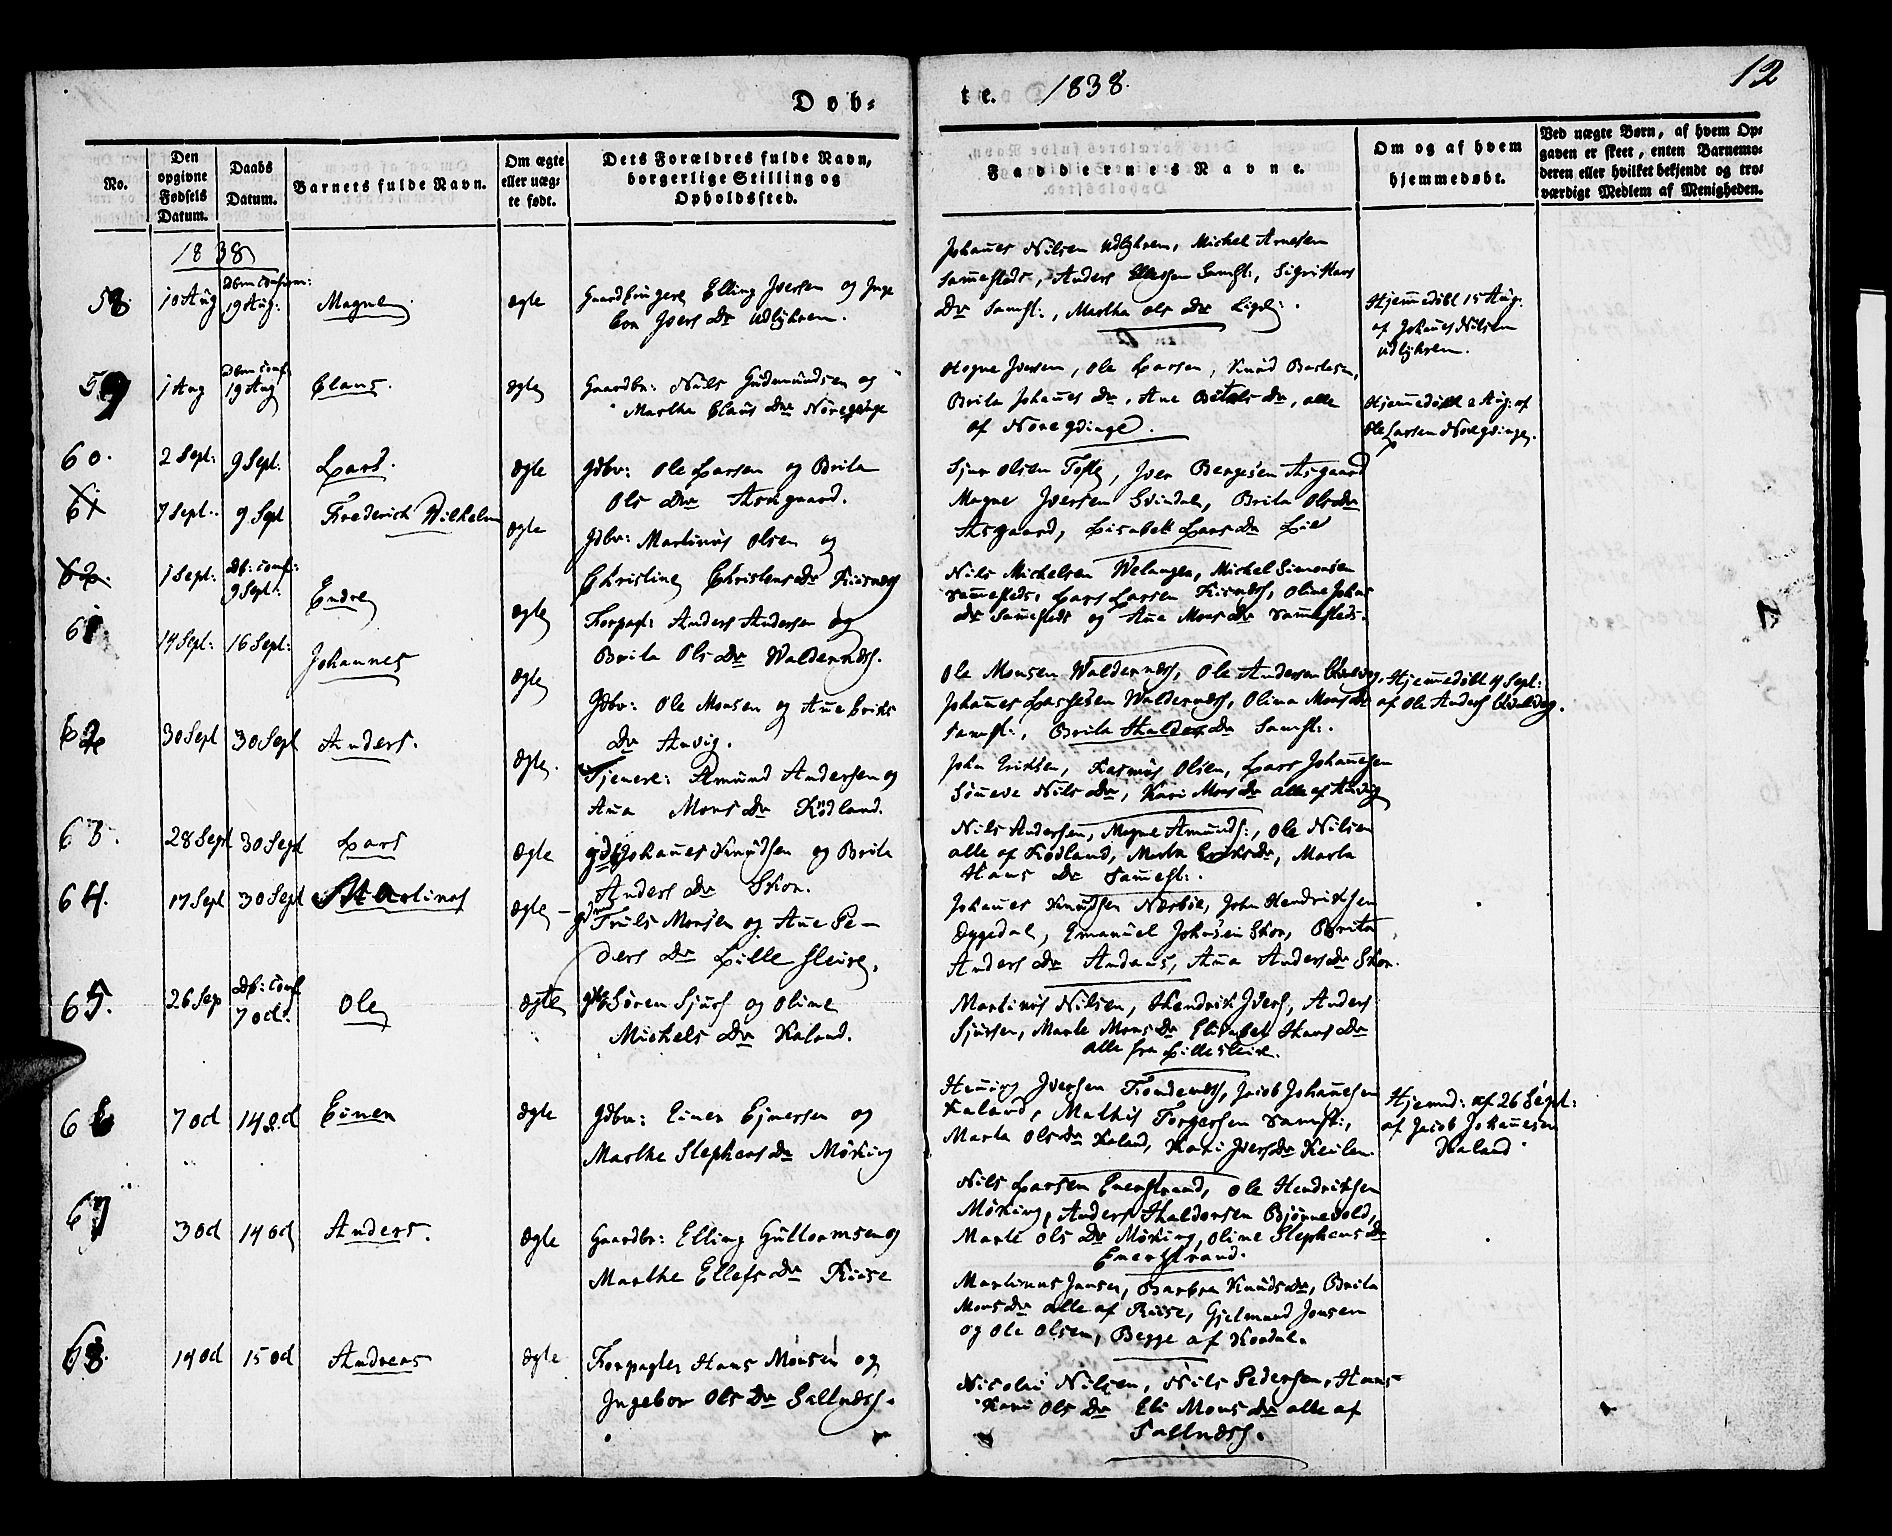 Døb-
te. 1838.
12
No.
Den opgivne Fødsels Datum.
Daabs Datum.
Barnets fulde Navn.
Om ægte eller uægte født.
Dets Forældres fulde Navn, borgerlige Stilling og Opholdssted.
Faddernes Navne.
Om og af hvem hjemmedøbt.
Ved uægte Børn, af hvem Opgaven er skeet, enten Barnemoderen eller hvilket bekjendt og troværdigt Medlem af Menigheden.
1838
58. 10 Aug 19 Aug: Magne Ægte
Elling Iversen og
Ivers Dr Udlykrem.
Johannes Nilsen Udlykrem, Michel Arnesen
sammesteds, Anders Samst:,
Dr Samst:, Martha Ols Dr
Hjemmedøbt 15 Aug:
af Johannes Nilsen
Udlykrem.
59 1 Aug 19 Aug Claus. Ægte
Gaardbr: Nils Gudmundsen og
Marthe Claus Dr
Hogne Iversen, Ole Larsen, Knud
Brita Johannes Dr, Ane Dr, alle
af
Hjemmedøbt 2 Aug: af
Ole Larsen
60. 2 Sept: 9 Sept: Lars. Ægte
Gdbr: Ole Larsen og Brita
Ols Dr Askgaard.
Sjur Olsen Tofte, Iver Askgaard
Magne Iversen Svindal, Brita Ols Dr
Asgaard, Lisabeth Lars Dr Lie
61 7 Sept: 9 Sept Frederich Wilhelm Ægte
Gdbr: Martinus Olsen og
Christine Christens Dr
Nils Michelsen Michel Simonsen
sammesteds, Lars Larsen Oline Johns
Dr Sammesteds og Ane Mons Dr Sammesteds.
62. 1 Sept: Db: Conf: 9 Sept: Endre Ægte
Forpagt: Anders Andersen og
Brita Ols Dr
Ole Monsen Ole Andersen
Johannes Olina Mons Dr
samst:, Brita Haldor Dr Samst:.
Hjemmedøbt 4 Sept:
af Ole Anders
61 14 Sept: 16 Sept: Johannes Ægte
Gdbr: Ole Monsen og Ane Eriks
Dr Anvig.
John Eriksen, Rasmus Olsen, Lars Johannesen
Nils Dr, Kari Mons Dr alle af Anvig
62 30 Sept 30 Sept Anders. Ægte.
Tjenere: Amund Andersen og
Anna Mons Dr Kodland.
Nils Andersen, Magne Amunds:, Ole Nilsen
alle af Kodland, Marta Eriks Dr, Marta
Hans Dr Samest:.
63. 28 Sept 30 Sept Lars Ægte
Johannes Knudsen og Brita
Anders Dr Skor.
Johannes Knudsen Næsbøe, John Hendriksen
Dyggedal, Emanuel Johnsen Skor, Brita
Anders Dr Andaas, Anna Anders Dr Skor.
64. 17 Sept 30 Sept Martinus Ægte
Truls Monsen og Ane Pe-
ders Dr Lille Sleire.
Martinus Nilsen, Hendrik Ivers, Anders
Sjursen, Marte Mons Dr Elisabet Hans Dr
alle fra Lillesleire.
65. 26 Sep Db: Conf 7 Oct. Ole Ægte
Søren Sjurs og Oline
Michels Dr Kaland.
Henning Iversen Jacob Johannesen
Kaland, Mathis Torgersen Samst:,
Marta Ols Dr Kaland, Kari Ivers Dr Keilen.
Hjemd: af 26 Sept:
af Jacob Johannesen
Kaland.
66 7 Oct 14 Oct Einer Ægte
Gdbr: Einer Ejnersen og
Marthe Stephens Dr Møking
Nils Larsen Enerstrand, Ole Hendriksen
Møking, Anders Haldorsen Bjørnevold,
Marte Ols Dr Møking, Oline Stephens Dr
Enerstrand.
67 3 Oct 14 Oct Anders. Ægte
Gaardbr: Elling Guttormsen og
Marthe Ellefs Dr Riise
Martinus Jansen, Barbra Knuds Dr, Brita
Mons Dr alle af Riise, Gjelmund Jonsen
og Ole Olsen, Begge af Kordal.
68. 14 Oct 15 Oct Andreas Ægte
Forpagter Hans Monsen og
Ingebor Ols Dr
Nicolai Nilsen, Nils Pedersen, Hans
Kari Ols Dr Eli Mons Dr alle af